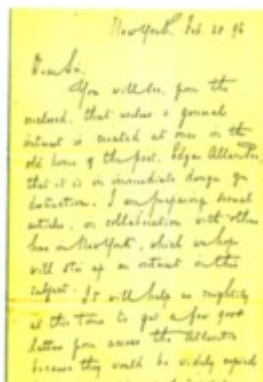 New York, Feb. 28 96
Dear Sir,
You will see, from the
enclosed, that unless a general
interest is created at once in the
old home of the poet, Edgar Allan Poe,
that it is in immediate danger of
destruction. I am preparing several
articles, in collaboration with others
here in New York, which we hope
will stir up an interest in this
subject. It will help us mightily
at this time to get a few good
letters from across the Atlantic
because they would be widely copied